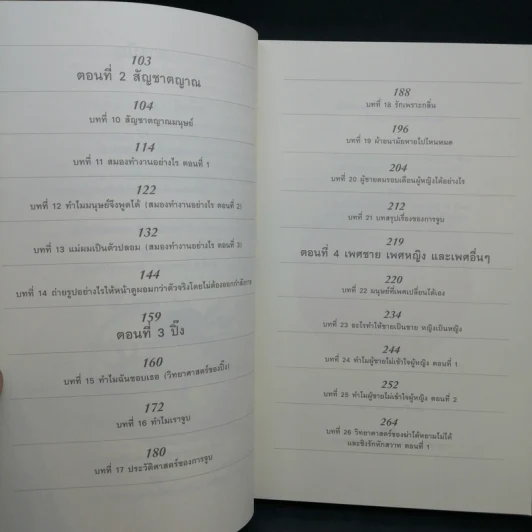 103
ตอนที่ 2 สัญชาตญาณ
104
บทที่ 10 สัญชาตญาณมนุษย์
114
บทที่ 11 สมองทำงานอย่างไร ตอนที่ 1
122
บทที่ 12 ทำไมมนุษย์จึงพูดได้ (สมองทำงานอย่างไร ตอนที่ 2)
132
บทที่ 13 แม่ผมเป็นตัวปลอม (สมองทำงานอย่างไร ตอนที่ 3)
144
บทที่ 14 ถ่ายรูปอย่างไรให้หน้าดูผอมกว่าตัวจริงโดยไม่ต้องออกกำลังกาย
159
ตอนที่ 3 ปิ๊ง
160
บทที่ 15 ทำไมฉันชอบเธอ (วิทยาศาสตร์ของปิ๊ง)
172
บทที่ 16 ทำไมเราจูบ
180
บทที่ 17 ประวัติศาสตร์ของการจูบ
188
บทที่ 18 รักเพราะกลิ่น
196
บทที่ 19 ผ้าอนามัยหายไปไหนหมด
204
บทที่ 20 ผู้ชายดมรอบเดือนผู้หญิงได้อย่างไร
212
บทที่ 21 บทสรุปเรื่องของการจูบ
219
ตอนที่ 4 เพศชาย เพศหญิง และเพศอื่นๆ
220
บทที่ 22 มนุษย์ที่เพศเปลี่ยนได้เอง
234
บทที่ 23 อะไรทำให้ชายเป็นชาย หญิงเป็นหญิง
244
บทที่ 24 ทำไมผู้ชายไม่เข้าใจผู้หญิง ตอนที่ 1
252
บทที่ 25 ทำไมผู้ชายไม่เข้าใจผู้หญิง ตอนที่ 2
264
บทที่ 26 วิทยาศาสตร์ของฆ่าได้หยามไม่ได้
และชิงรักหักสวาท ตอนที่ 1